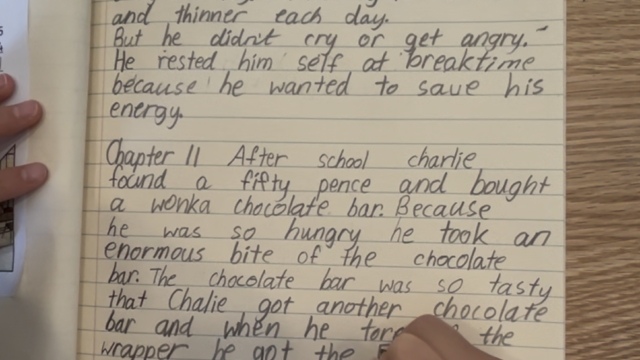 and thinner each day.
But he didn't cry or get angry.
He rested him self at breaktime
because he wanted to save his
energy.
Chapter 11 After school charlie
found a fifty pence and bought
a wonka chocolate bar. Because
he was so hungry he took an
enormous bite of the chocolate
bar. The chocolate bar was so tasty
that Chalie got another chocolate
bar and when he the
wrapper he got the